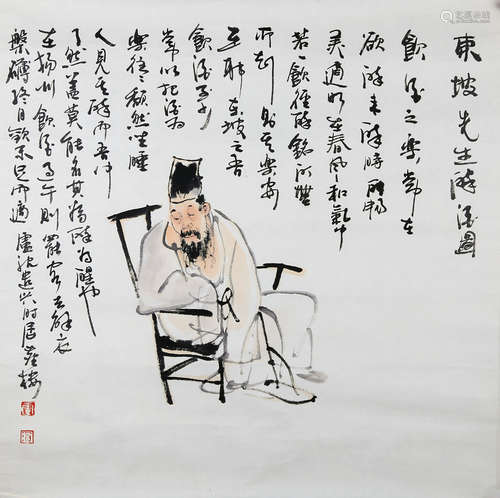 東坡先生醉酒圖
飲酒之樂常在
欲醉未醉時酣暢
美適如在春風和氣中
若一飲徑醉銘所無
所知則其樂安
在耶東坡之吾
飲酒至少
常以把酒為
樂往往頹然坐睡
人見其醉而吾中
了然蓋莫能名其為醉為醒也
在揚州飲酒過午則罷客去解衣
槃礴終日歡不足而適盧沉遣興時居